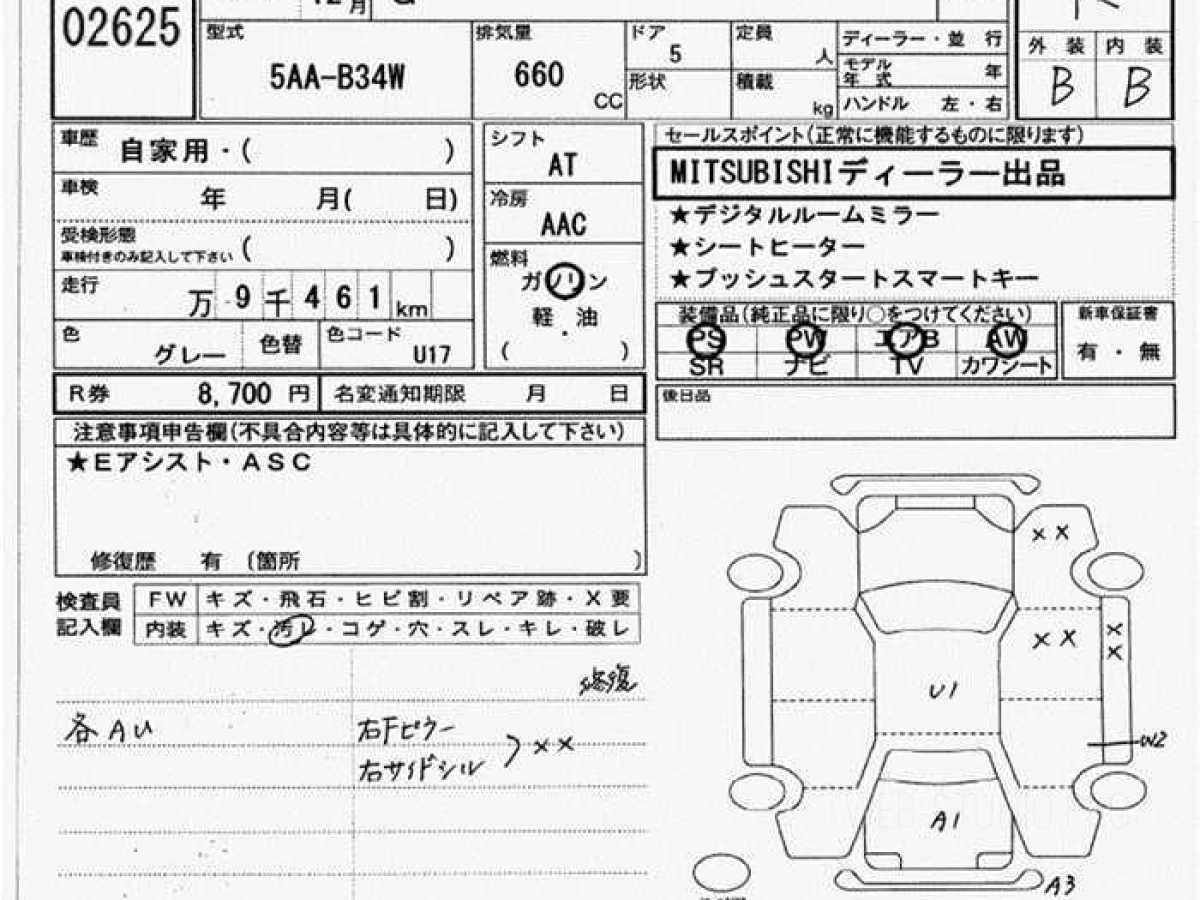 02625
月
型式
5AA-B34W
排気量
660
CC
ドア
5
形状
定員
人
積載
kg
ディーラー・並 行
モデル
年 式
年
ハンドル 左・右
外 装
内 装
B
B
車歴
自家用・( )
車検
年 月( 日)
受検形態
車検付きのみ記入して下さい
( )
走行
万9千461km
色
グレー
色替
色コード
U17
シフト
AT
冷房
AAC
燃料
ガソリン
軽・油
( )
セールスポイント(正常に機能するものに限ります)
MITSUBISHIディーラー出品
★デジタルルームミラー
★シートヒーター
★プッシュスタートスマートキー
装備品(純正品に限り〇をつけてください)
PS PW エアB AW
SR ナビ TV カワシート
新車保証書
有・無
R券
8,700 円
名変通知期限
月 日
後日品
注意事項申告欄(不具合内容等は具体的に記入して下さい)
★Eアシスト・ASC
修復歴 有 (箇所 )
検査員
記入欄
FW キズ・飛石・ヒビ割・リペア跡・X要
内装 キズ・汚レ・コゲ・穴・スレ・キレ・破レ
修復
各AU
右Fピラー
右サイドシル
) ××
××
××
××
U1
W2
A1
A3